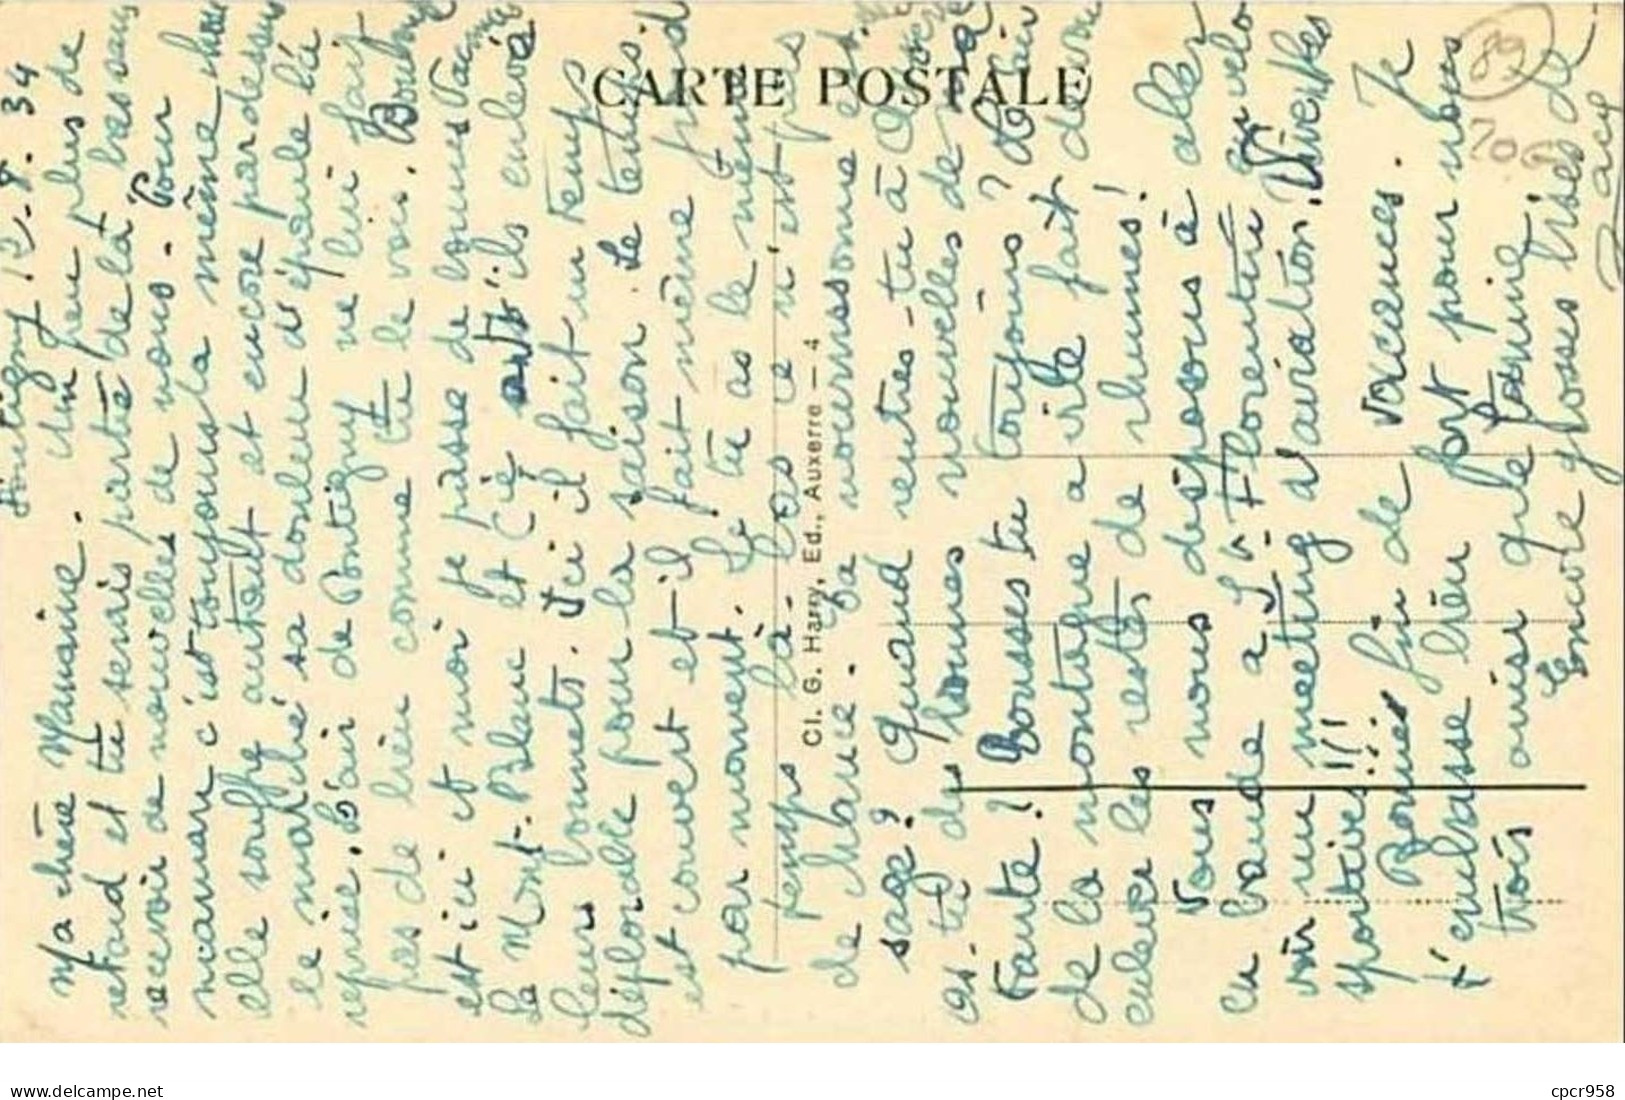 Pontigny 12-8.34
Ma chère Mamsine. Un peu plus de
retard et tu serais partie de là bas sans
recevoir de nouvelles de nous. Pour
maman c'est toujours la même
elle souffre autant et encore par dessus
le marché sa douleur d'épaule l'a
reprise. L'air de Pontigny ne lui fait
pas de bien comme tu le vois. Boubou
est ici et moi je passe de bonnes
Le Mont-Blanc et Cie ont-ils enlevé
leurs bonnets. Ici il fait un temps
déplorable pour la saison. Le temps
est couvert et il fait même froid
par moment. Si tu as le même
temps là-bas ce n'est pas
de chance. Sa nourrissonne est-
sage? Quand rentres-tu à Auxerre
as-tu des bonnes nouvelles de ma
Tante? Tousses tu toujours? L'air
de la montagne a vite fait de
enlever les restes de rhumes!
Nous nous disposons à aller
en bande à St Florentin en vélo
voir un meeting d'aviation. Vive les
sportives!!!
Bonne fin de vacances. Je
t'embrasse bien fort pour nous
trois ainsi que
Encore grosses bises de
Jacq
89
200
CARTE POSTALE
Cl. G. Harry, Ed., Auxerre — 4
delcampe.net
cpcr958